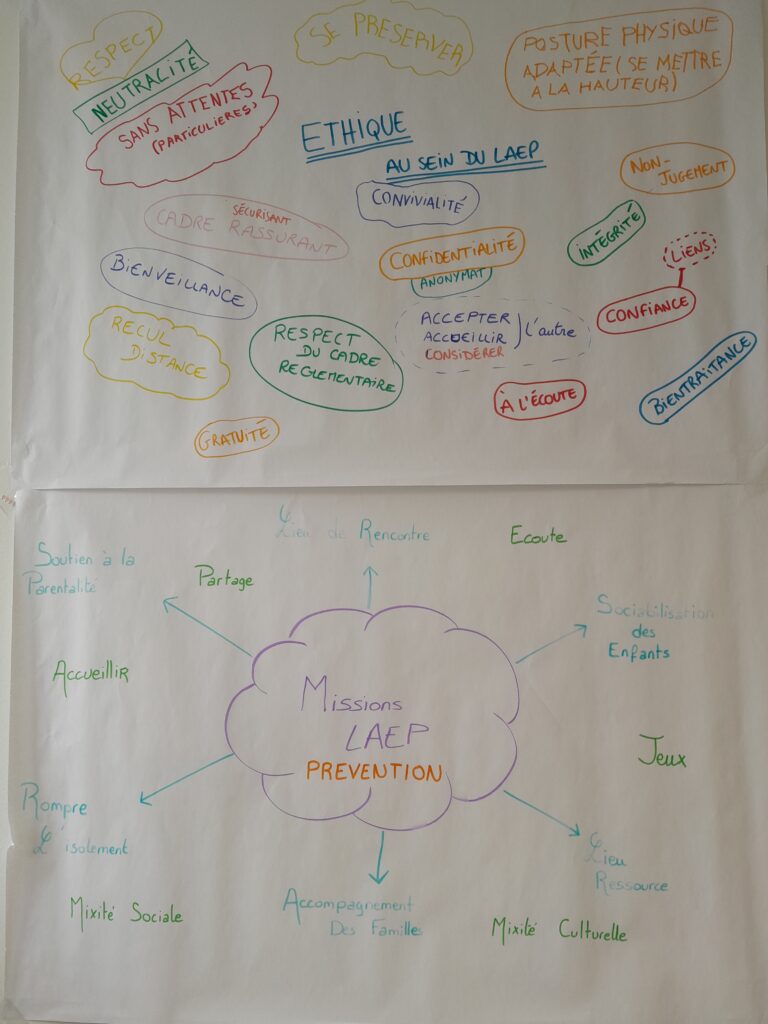 RESPECT
NEUTRALITÉ
SANS ATTENTES
(PARTICULIERES)
SE PRESERVER
POSTURE PHYSIQUE
ADAPTÉE (SE METTRE
A LA HAUTEUR)
ETHIQUE
AU SEIN DU LAEP
NON-
JUGEMENT
CONVIVIALITÉ
SÉCURISANT
CADRE RASSURANT
INTÉGRITÉ
CONFIDENTIALITÉ
ANONYMAT
LIENS
BIENVEILLANCE
CONFIANCE
ACCEPTER
ACCUEILLIR
CONSIDÉRER
l'autre
RECUL
DISTANCE
RESPECT
DU CADRE
REGLEMENTAIRE
BIENTRAITANCE
À L'ÉCOUTE
GRATUITÉ
Lieu de Rencontre
Ecoute
Soutien à la
Parentalité
Partage
Sociabilisation
des
Enfants
Accueillir
Missions
LAEP
PREVENTION
Jeux
Rompre
L'isolement
Lieu
Ressource
Accompagnement
Des Familles
Mixité Sociale
Mixité Culturelle